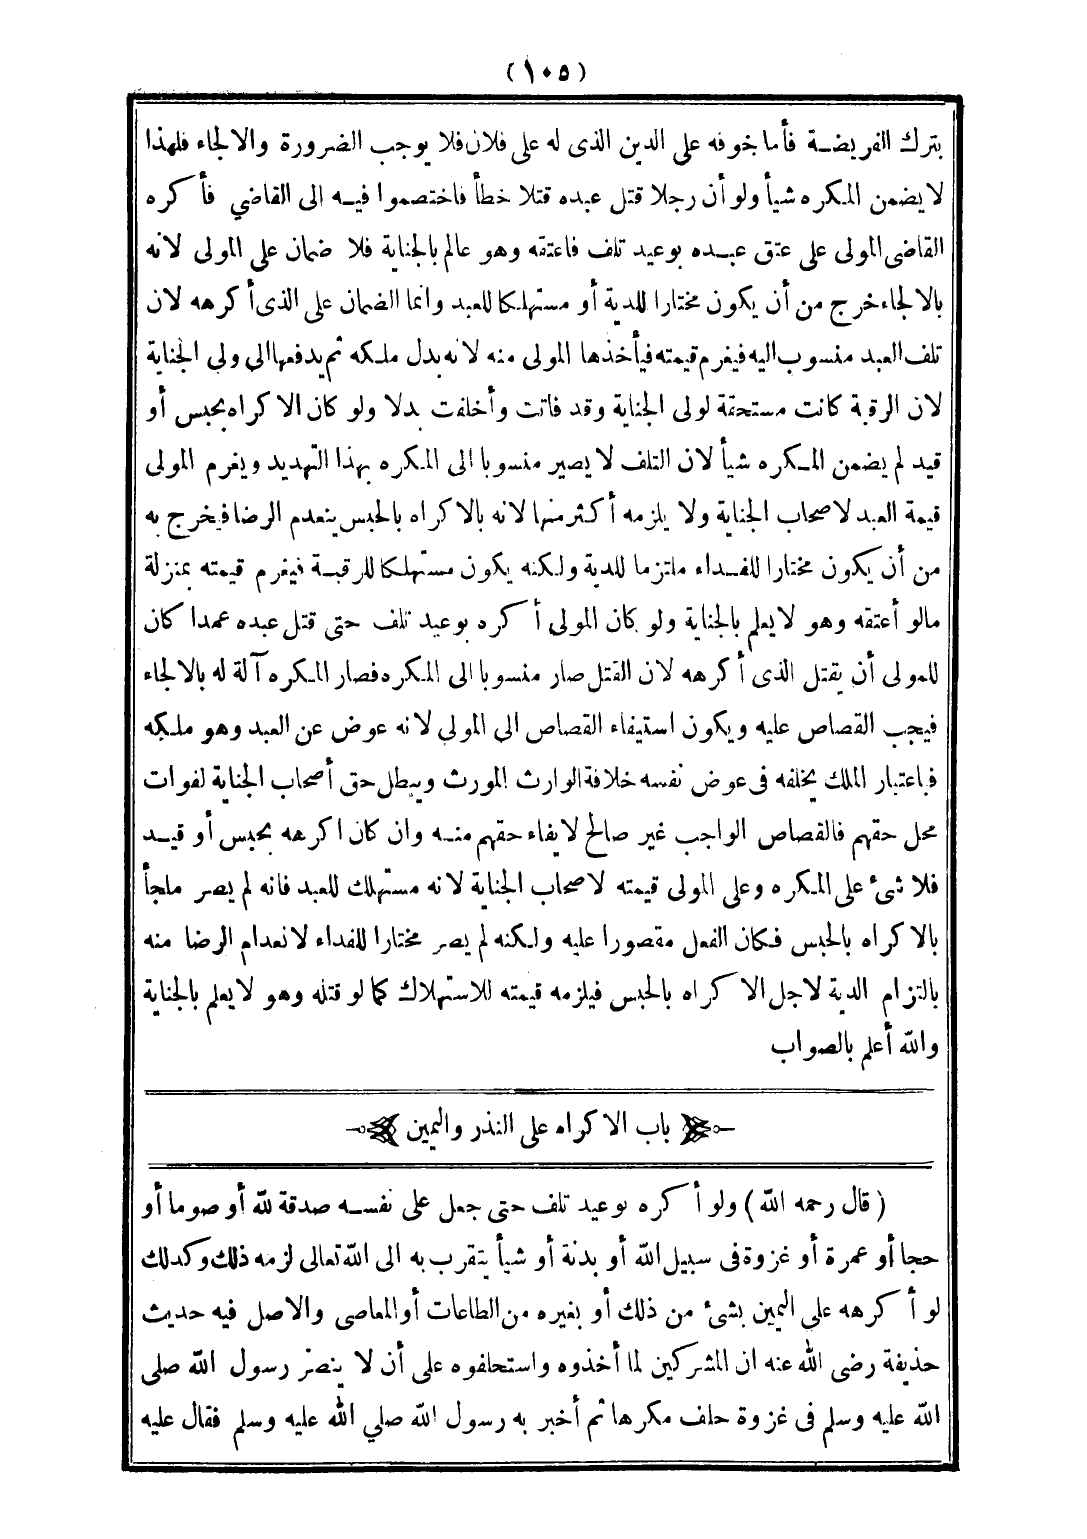 (١٠٥)
بترك الفريضة فأما خوفه على الدين الذى له على فلان فلا يوجب الضرورة والالجاء فلهذا
لا يضمن المكره شيأ ولو أن رجلا قتل عبده قتلا خطأ فاختصموا فيه الى القاضي فأكره
القاضى المولى على عتق عبده بوعيد تلف فاعتقه وهو عالم بالجناية فلا ضمان على المولى لانه
بالالجاء خرج من أن يكون مختارا للدية أو مستهلكا للعبد وانما الضمان على الذى أكرهه لان
تلف العبد منسوب اليه فيغرم قيمته فيأخذها المولى منه لانه بدل ملكه ثم يدفعها الى ولى الجناية
لان الرقبة كانت مستحقة لولى الجناية وقد فاتت وأخلفت بدلا ولو كان الاكراه بحبس أو
قيد لم يضمن المكره شيأ لان التلف لا يصير منسوبا الى المكره بهذا التهديد ويغرم المولى
قيمة العبد لاصحاب الجناية ولا يلزمه أكثر منها لانه بالاكراه بالحبس ينعدم الرضا فيخرج به
من أن يكون مختارا للفداء ملتزما للدية ولكنه يكون مستهلكا للرقبة فيغرم قيمته بمنزلة
مالو أعتقه وهو لا يعلم بالجناية ولو كان المولى أكره بوعيد تلف حتى قتل عبده عمدا كان
للمولى أن يقتل الذى أكرهه لان القتل صار منسوبا الى المكره فصار المكره آلة له بالالجاء
فيجب القصاص عليه ويكون استيفاء القصاص الى المولى لانه عوض عن العبد وهو ملكه
فباعتبار الملك يخلفه فى عوض نفسه خلافة الوارث المورث ويبطل حق أصحاب الجناية لفوات
محل حقهم فالقصاص الواجب غير صالح لايفاء حقهم منه وان كان اكرهه بحبس أو قيد
فلا شئ على المكره وعلى المولى قيمته لاصحاب الجناية لانه مستهلك للعبد فانه لم يصر ملجأ
بالاكراه بالحبس فكان الفعل مقصورا عليه ولكنه لم يصر مختارا للفداء لانعدام الرضا منه
بالتزام الدية لاجل الاكراه بالحبس فيلزمه قيمته للاستهلاك كما لو قتله وهو لا يعلم بالجناية
والله أعلم بالصواب
باب الاكراه على النذر واليمين
(قال رحمه الله) ولو أكره بوعيد تلف حتى جعل على نفسه صدقة لله أو صوما أو
حجا أو عمرة أو غزوة فى سبيل الله أو بدنة أو شيأ يتقرب به الى الله تعالى لزمه ذلك وكدلك
لو أكرهه على اليمين بشئ من ذلك أو بغيره من الطاعات أو المعاصى والاصل فيه حديث
حذيفة رضى الله عنه ان المشركين لما أخذوه واستحلفوه على أن لا ينصر رسول الله صلى
الله عليه وسلم فى غزوة حلف مكرها ثم أخبر به رسول الله صلي الله عليه وسلم فقال عليه